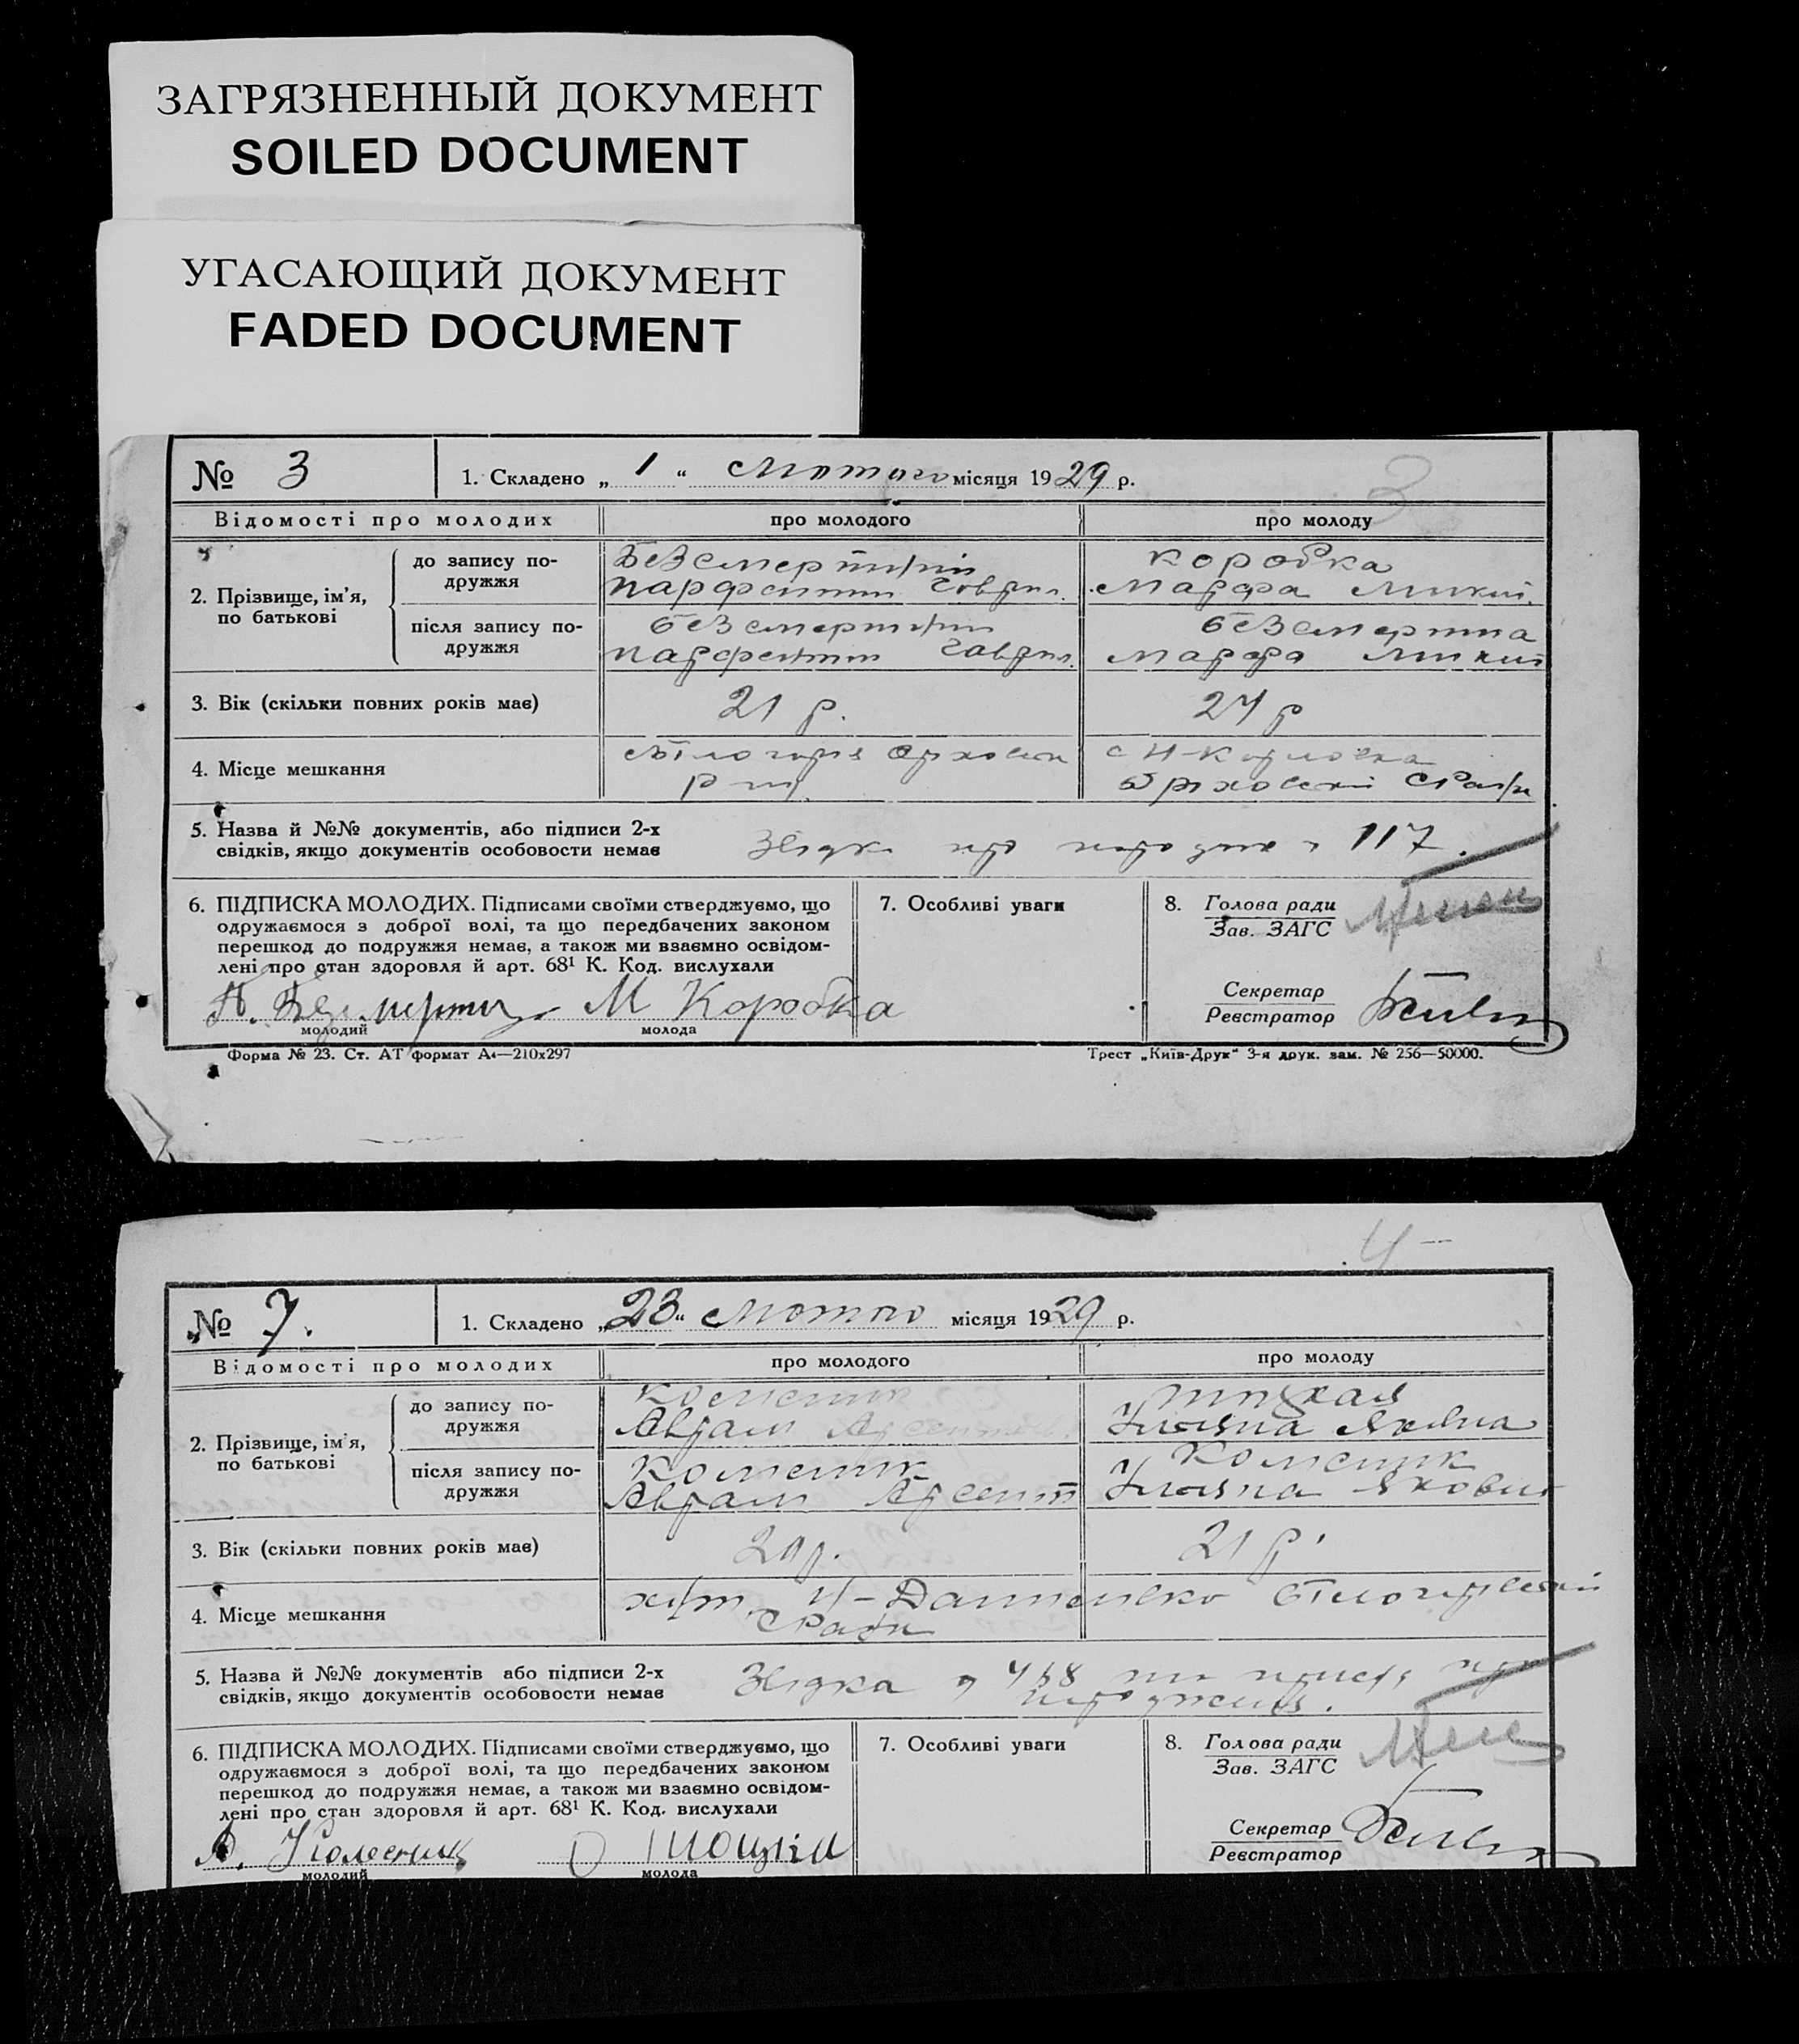 ЗАГРЯЗНЕННЫЙ ДОКУМЕНТ
SOILED DOCUMENT
УГАСАЮЩИЙ ДОКУМЕНТ
FADED DOCUMENT
3
№ 3 1. Складено „ 1 “ Лютого місяця 1929 р.
Відомості про молодих про молодого про молоду
2. Прізвище, ім’я, по батькові
до запису по-
дружжя
Безсмертний
Парфентий Гаврил.
Коробка
Марфа Микит.
після запису по-
дружжя
Безсмертний
Парфентий Гаврил.
Безсмертна
Марфа Микит
3. Вік (скільки повних років має) 21 р. 24 р
4. Місце мешкання
5. Назва й №№ документів, або підписи 2-х
свідків, якщо документів особовости немає
117.
6. ПІДПИСКА МОЛОДИХ. Підписами своїми стверджуємо, що
одружаємося з доброї волі, та що передбачених законом
перешкод до подружжя немає, а також ми взаємно освідом-
лені про стан здоровля й арт. 68¹ К. Код. вислухали
П. Безмертний М Коробка
молодий молода
7. Особливі уваги
8. Голова ради
Зав. ЗАГС
Секретар
Реєстратор
Форма № 23. Ст. АТ формат А₄—210х297 Трест „Київ-Друк“ 3-я друк. зам. № 256—50000.
4
№ 7. 1. Складено „23“ Лютого місяця 1929 р.
Відомості про молодих про молодого про молоду
2. Прізвище, ім’я, по батькові
до запису по-
дружжя
Колесник
Аврам Арсентов.
Уляна Яківна
після запису по-
дружжя
Колесник
Аврам Арсент
Колесник
Уляна Яковин
3. Вік (скільки повних років має) 21 р.
4. Місце мешкання
Ради
5. Назва й №№ документів або підписи 2-х
свідків, якщо документів особовости немає
6. ПІДПИСКА МОЛОДИХ. Підписами своїми стверджуємо, що
одружаємося з доброї волі, та що передбачених законом
перешкод до подружжя немає, а також ми взаємно освідом-
лені про стан здоровля й арт. 68¹ К. Код. вислухали
А. Колесник
молодий молода
7. Особливі уваги
8. Голова ради
Зав. ЗАГС
Секретар
Реєстратор